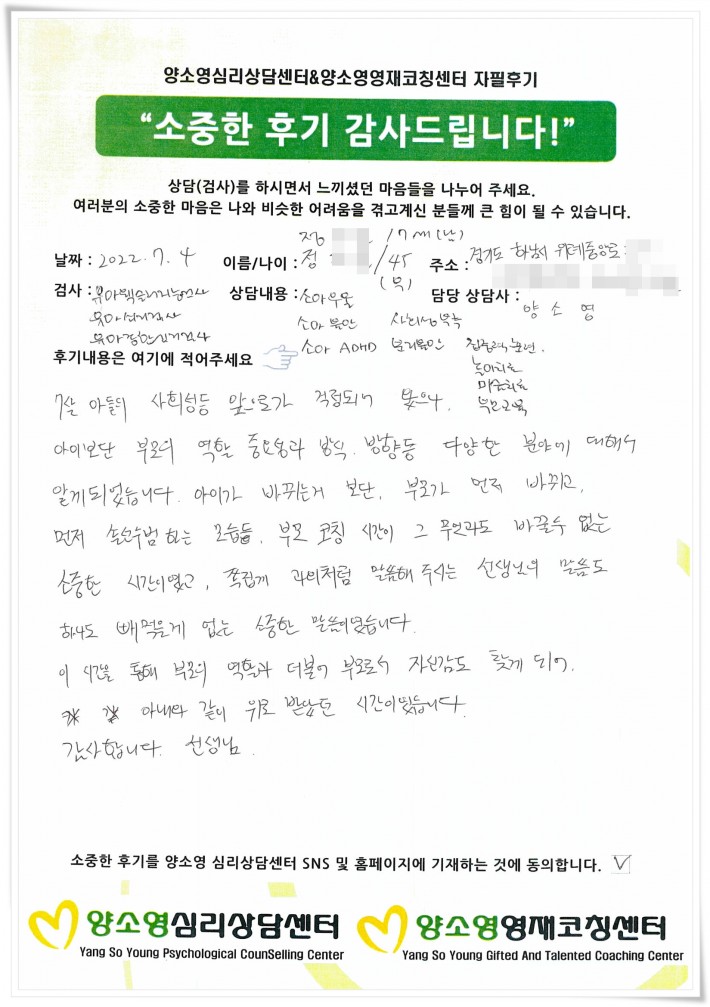 양소영심리상담센터&양소영영재코칭센터 자필후기
“소중한 후기 감사드립니다!”
상담(검사)를 하시면서 느끼셨던 마음들을 나누어 주세요.
여러분의 소중한 마음은 나와 비슷한 어려움을 겪고계신 분들께 큰 힘이 될 수 있습니다.
정 /7세(남)
날짜 : 2022. 7. 4 이름/나이 : 정 /45 주소 : 경기도 하남시 위례중앙로
(부)
검사 : 유아웩슬러지능검사 상담내용 : 소아우울 담당 상담사 : 양소영
유아정서검사 소아불안 사회성부족
유아 소아 ADHD 분리불안 집중력훈련.
놀이치료
미술치료
부모교육
후기내용은 여기에 적어주세요
7살 아들의 사회성등 앞으로가 걱정되어 왔으나.
아이보단 부모의 역할 중요성과 방식. 방향등 다양한 분야에 대해서
알게되었습니다. 아이가 바뀌는거 보단, 부모가 먼저 바뀌고,
먼저 솔선수범 하는 모습들, 부모 코칭 시간이 그 무엇과도 바꿀수 없는
소중한 시간이였고, 쪽집게 과외처럼 말씀해 주시는 선생님의 말씀도
하나도 빼먹을게 없는 소중한 말씀이였습니다.
이 시간을 통해 부모의 역할과 더불어 부모로서 자신감도 찾게 되어.
아내와 같이 위로 받았던 시간이였습니다.
감사합니다. 선생님.
소중한 후기를 양소영 심리상담센터 SNS 및 홈페이지에 기재하는 것에 동의합니다. ✓
양소영심리상담센터 양소영영재코칭센터
Yang So Young Psychological CounSelling Center Yang So Young Gifted And Talented Coaching Center